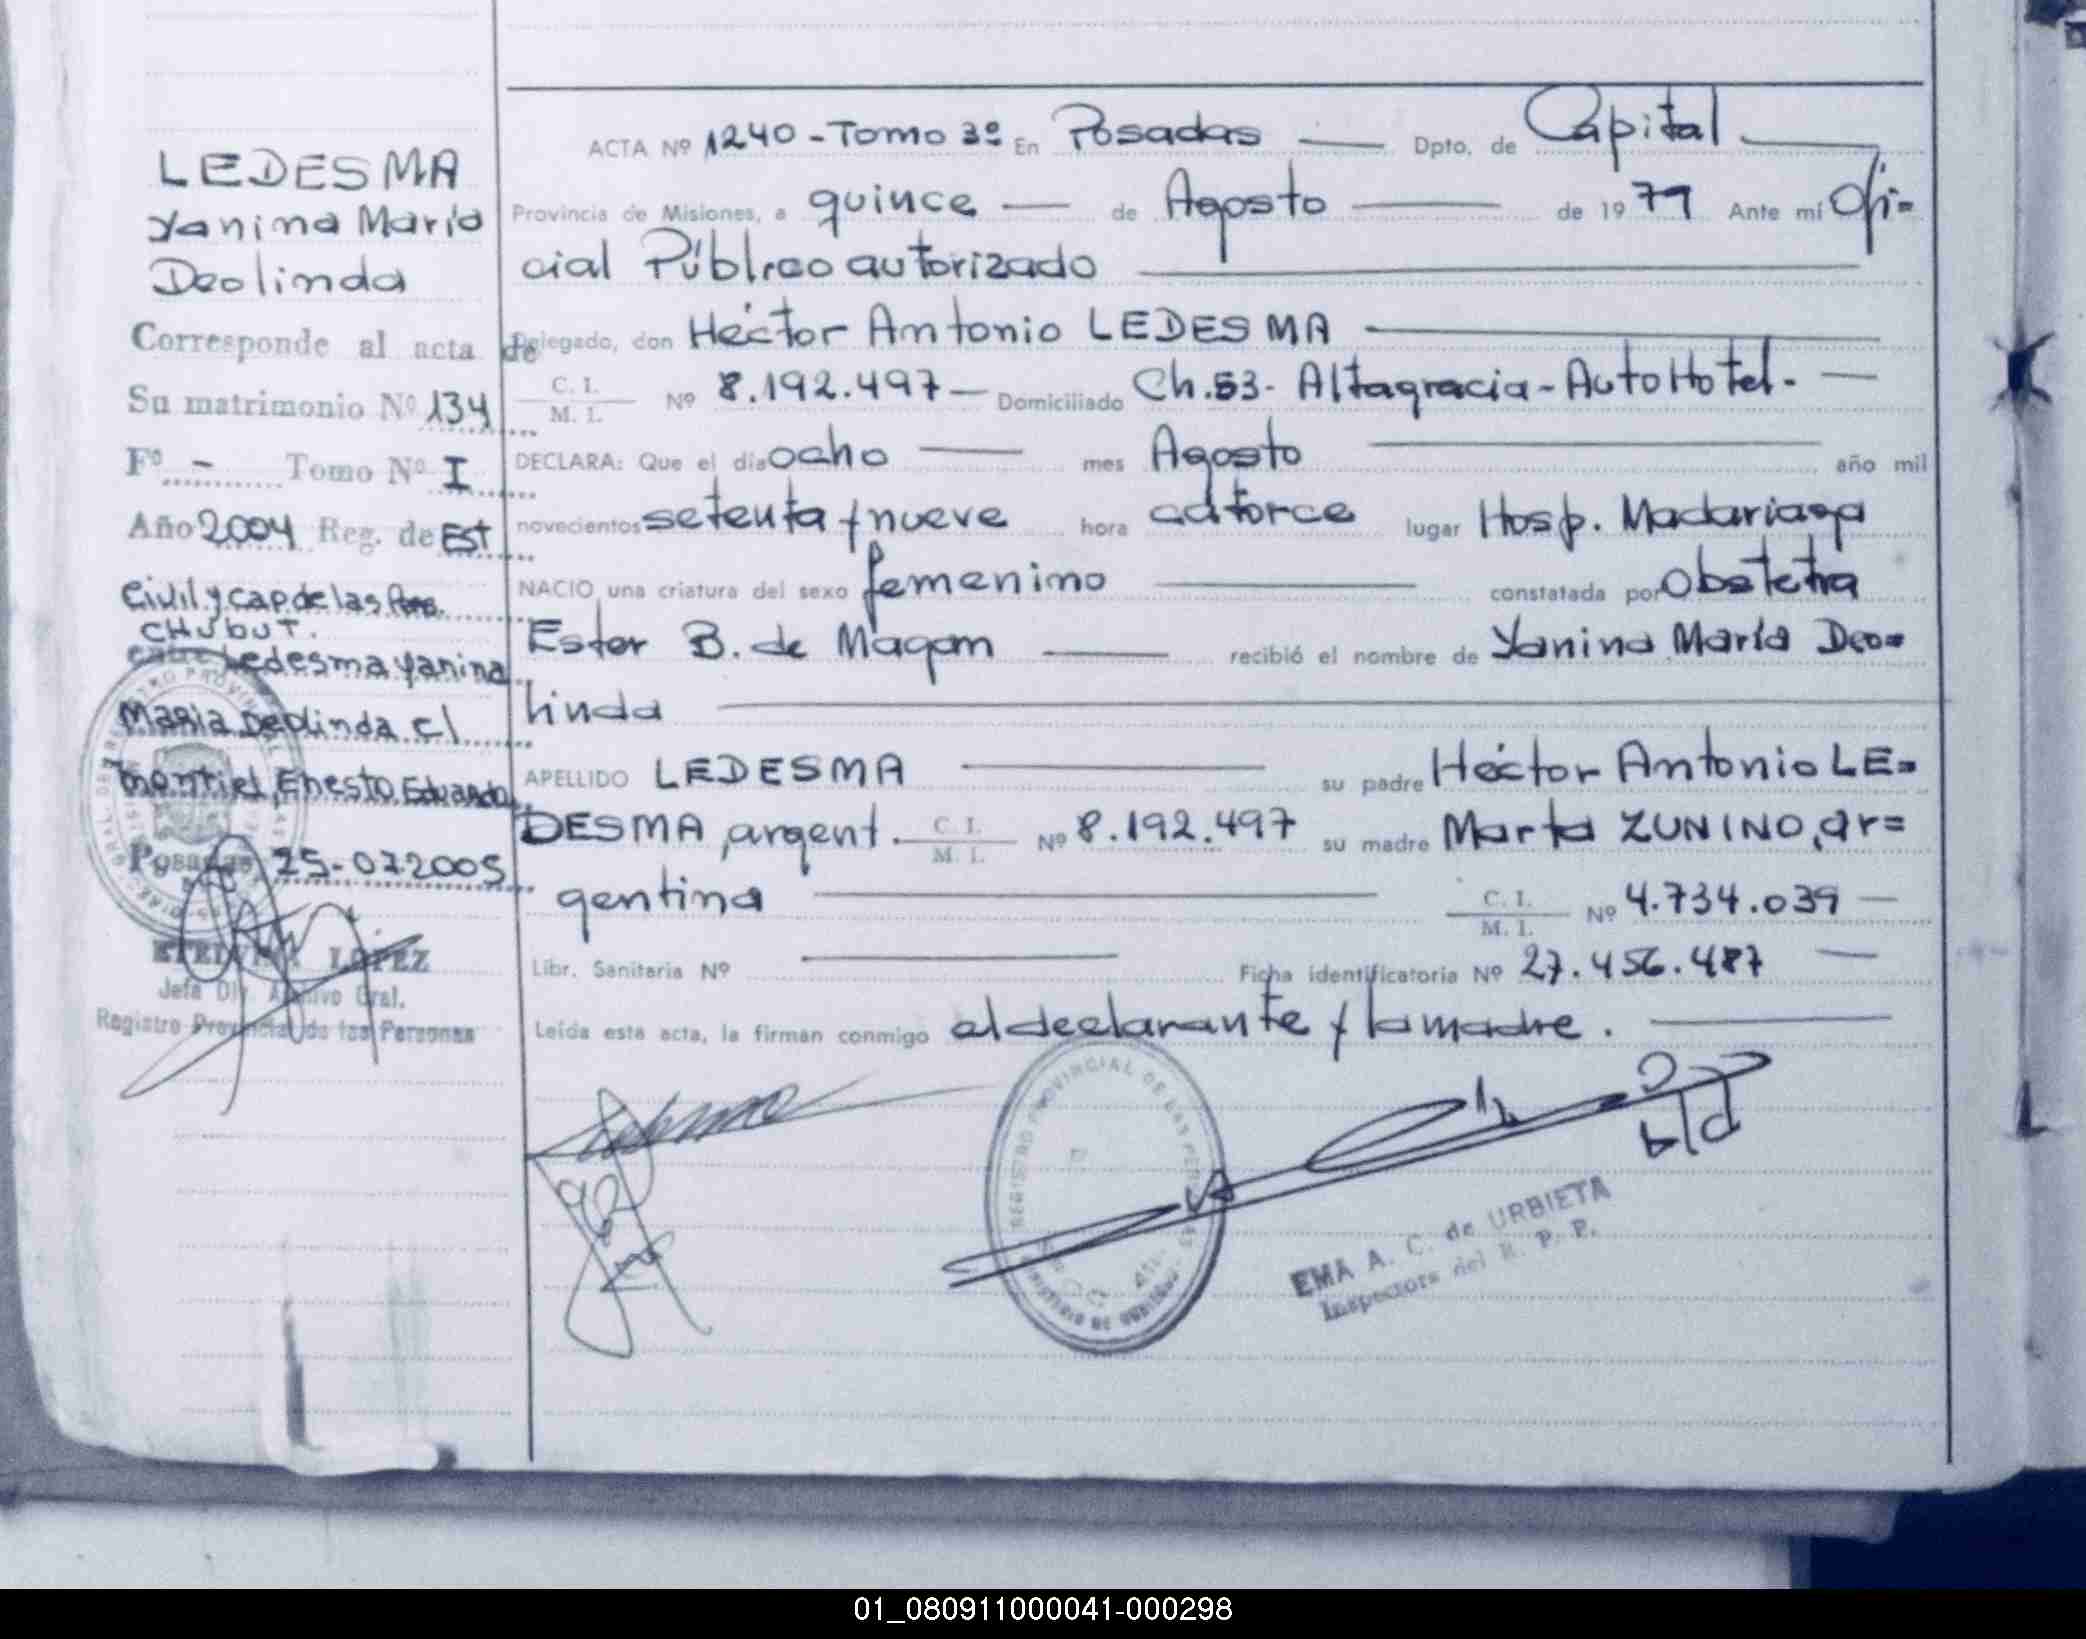 LEDESMA
Yanina María
Deolinda
Corresponde al acta de
Su matrimonio Nº 134
Fº - Tomo Nº I
Año 2004 Reg. de Est
Civil y Cap de las Pers.
CHUBUT.
entre Ledesma Yanina
Maria Deolinda c/
Montiel, Enesto Eduardo
Posadas, 25-07-2005
LOPEZ
Jefa Div. Archivo Gral.
Registro Provincial de las Personas
ACTA Nº 1240 - Tomo 3º En Posadas Dpto. de Capital
Provincia de Misiones, a quince de Agosto de 1979 Ante mí Ofi=
cial Público autorizado
Delegado, don Héctor Antonio LEDESMA
C. I.
M. I. Nº 8.192.497 - Domiciliado Ch.53- Altagracia - AutoHotel. -
DECLARA: Que el día ocho mes Agosto año mil
novecientos setenta y nueve hora catorce lugar Hosp. Madariaga
NACIO una criatura del sexo femenino constatada por Obstetra
Ester B. de Magan recibió el nombre de Yanina María Deo=
linda
APELLIDO LEDESMA su padre Héctor Antonio LE=
DESMA, argent. C. I.
M. I. Nº 8.192.497 su madre Marta ZUNINO, ar=
gentina C. I.
M. I. Nº 4.734.039 -
Libr. Sanitaria Nº Ficha identificatoria Nº 27.456.487 -
Leída esta acta, la firman conmigo el declarante y la madre.
REGISTRO PROVINCIAL DE LAS PERSONAS
EMA A. C. de URBIETA
Inspectora del R. P. P.
01_080911000041-000298